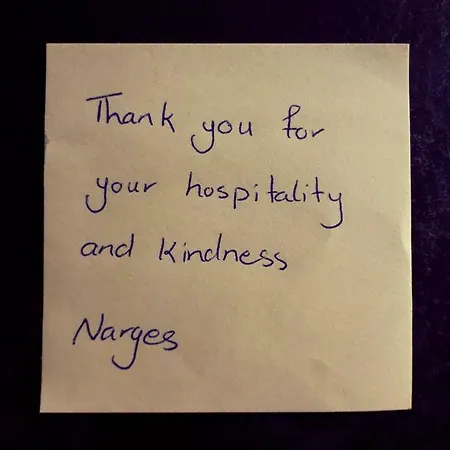 Thank you for
your hospitality
and kindness
Narges